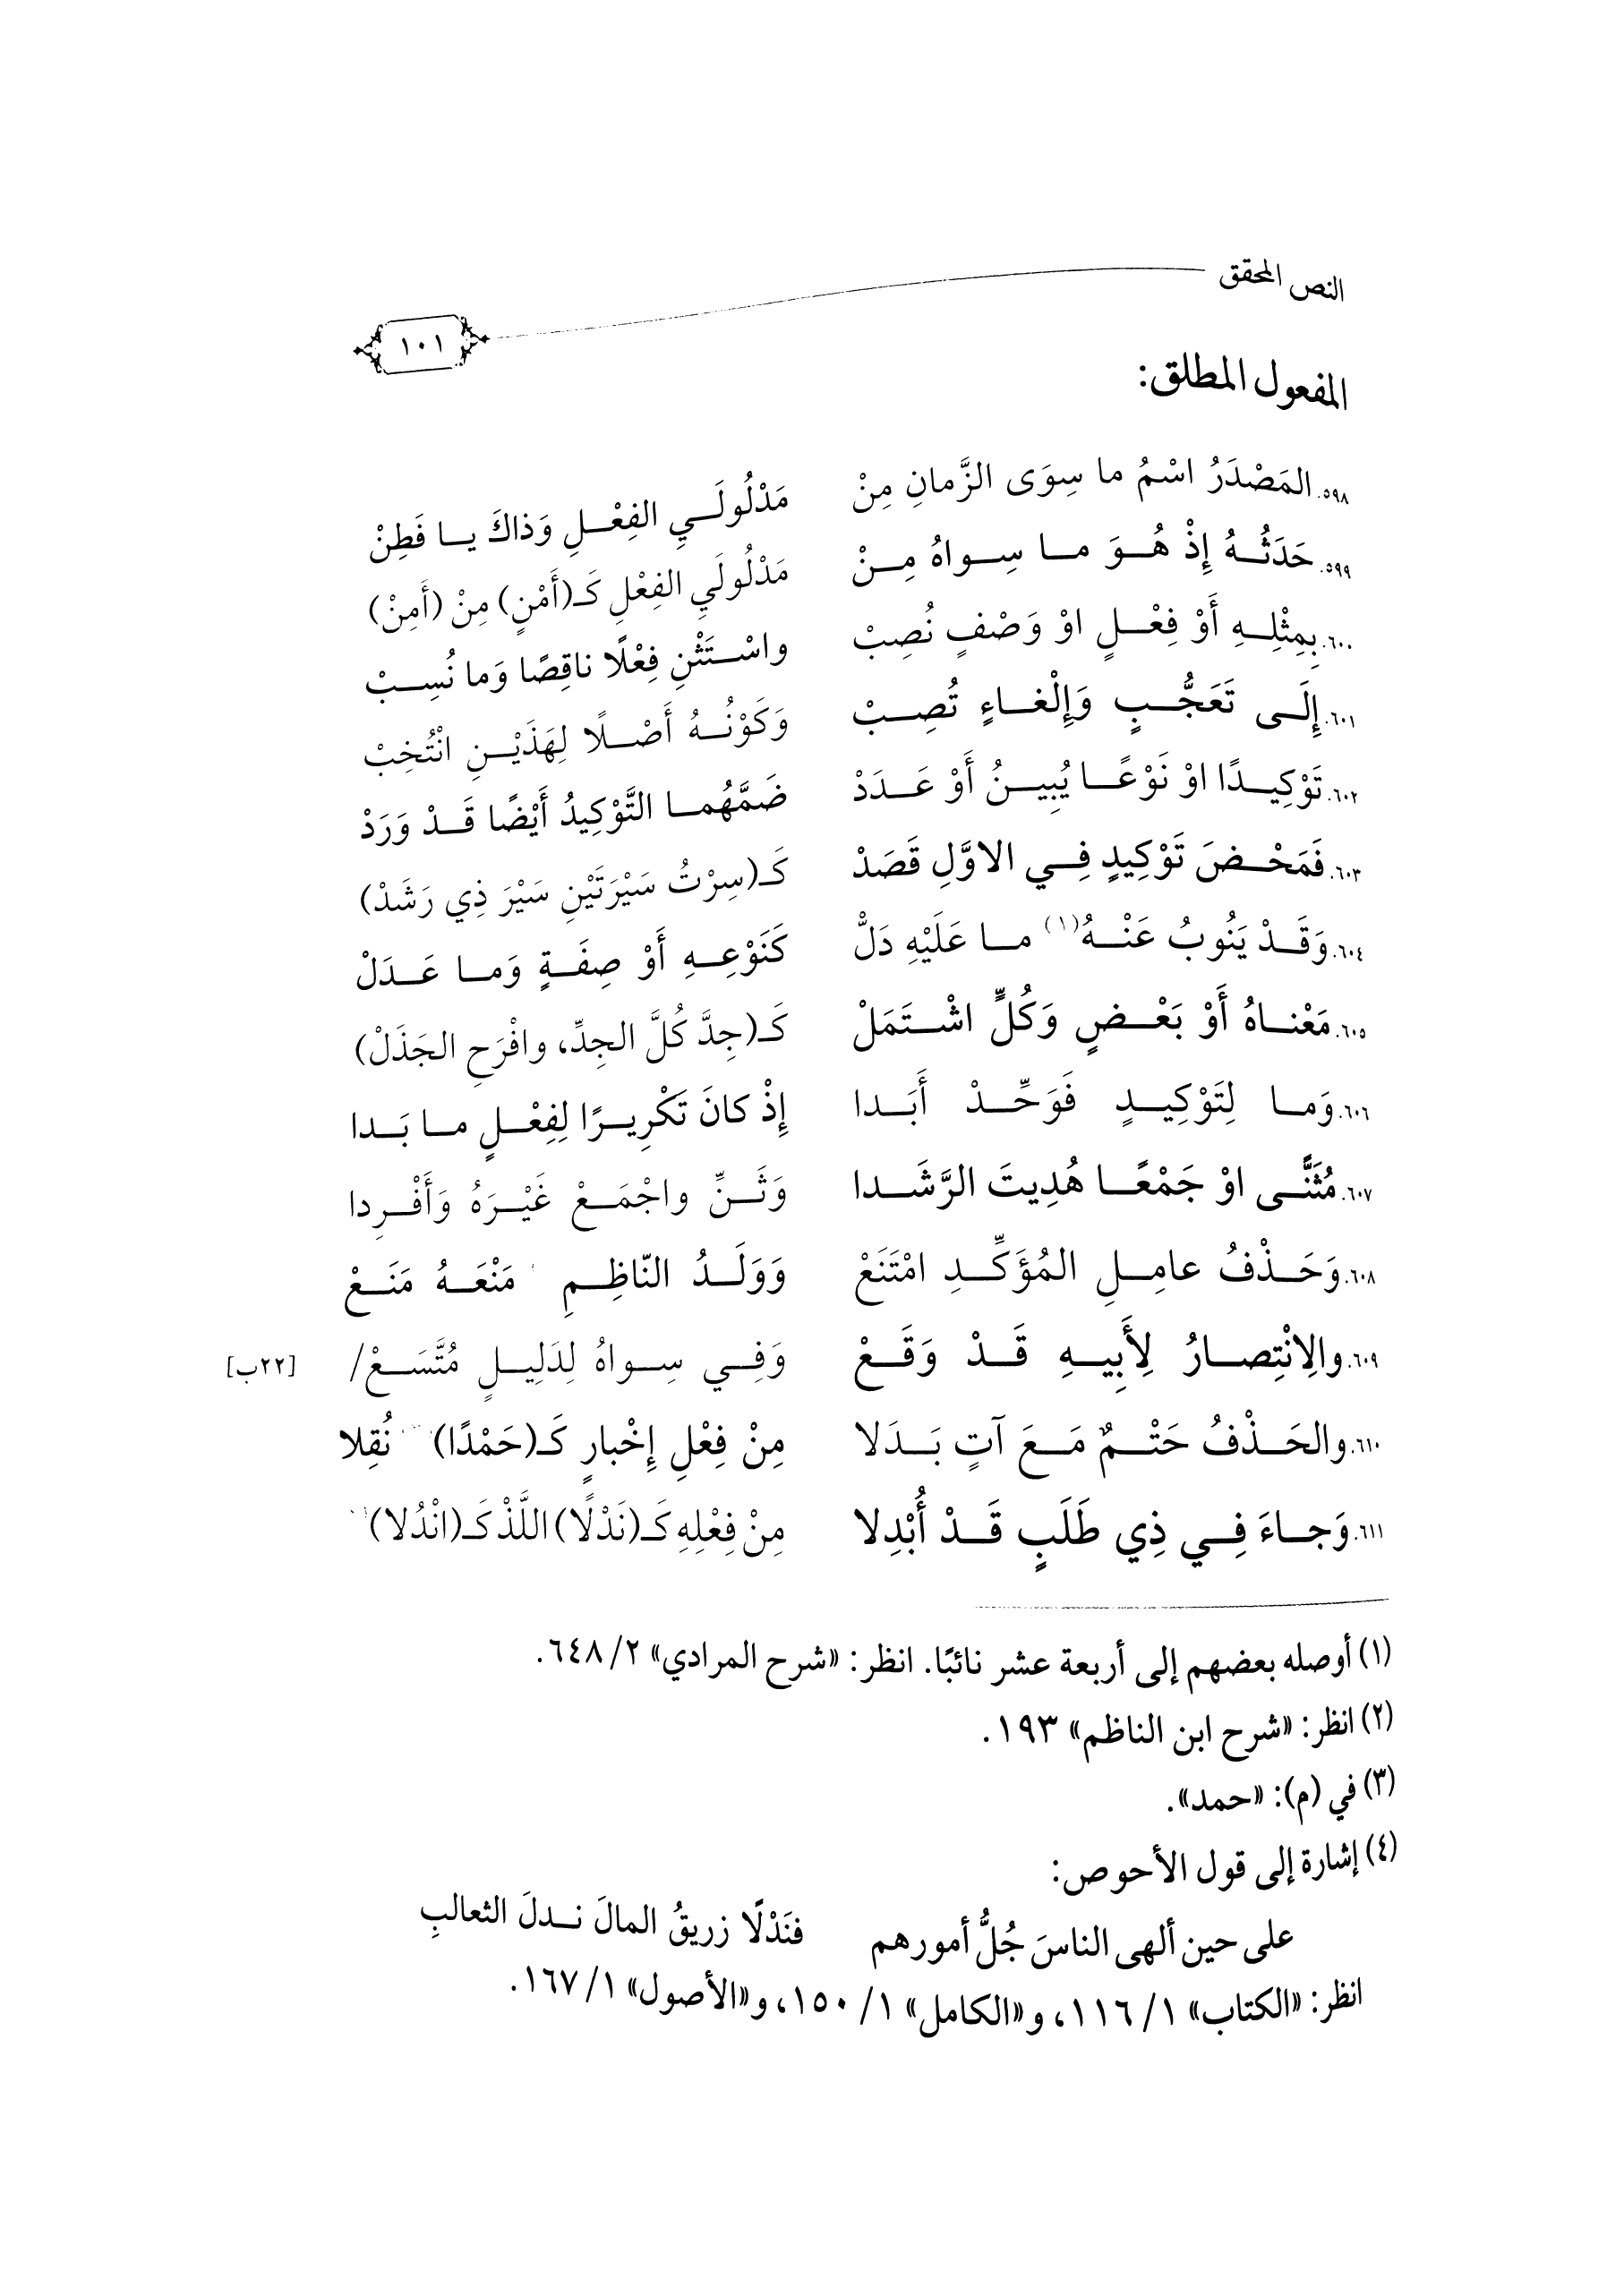 النص المحقق
١٠١
المفعول المطلق:
٥٩٨. المَصْدَرُ اسْمُ ما سِوَى الزَّمانِ مِنْ مَدْلُولَـــيِ الفِعْـــلِ وَذاكَ يـــا فَطِنْ
٥٩٩. حَدَثُـــهُ إِذْ هُـــوَ مـــا سِـــواهُ مِـــنْ مَدْلُولَيِ الفِعْلِ كَـ(أَمْنٍ) مِنْ (أَمِنْ)
٦٠٠. بِمِثْلِـــهِ أَوْ فِعْـــلٍ اوْ وَصْفٍ نُصِبْ واسْـــتَثْنِ فِعْلًا ناقِصًا وَما نُسِـــبْ
٦٠١. إِلَـــى تَعَجُّـــبٍ وَإِلْغـــاءٍ تُصِـــبْ وَكَوْنُـــهُ أَصْـــلًا لِهَذَيْـــنِ انْتُخِبْ
٦٠٢. تَوْكِيـــدًا اوْ نَوْعًـــا يُبِيـــنُ أَوْ عَـــدَدْ ضَمَّهُمـــا التَّوْكِيدُ أَيْضًا قَـــدْ وَرَدْ
٦٠٣. فَمَحْـــضَ تَوْكِيدٍ فِـــي الاوَّلِ قَصَدْ كَـ(سِرْتُ سَيْرَتَيْنِ سَيْرَ ذِي رَشَدْ)
٦٠٤. وَقَـــدْ يَنُوبُ عَنْـــهُ(١) مـــا عَلَيْهِ دَلّْ كَنَوْعِـــهِ أَوْ صِفَـــةٍ وَمـــا عَـــدَلْ
٦٠٥. مَعْنـــاهُ أَوْ بَعْـــضٍ وَكُلٍّ اشْـــتَمَلْ كَـ(جِدَّ كُلَّ الجِدِّ، وافْرَحِ الجَذَلْ)
٦٠٦. وَمـــا لِتَوْكِيـــدٍ فَوَحِّـــدْ أَبَـــدا إِذْ كانَ تَكْرِيـــرًا لِفِعْـــلٍ مـــا بَـــدا
٦٠٧. مُثَنًّـــى اوْ جَمْعًـــا هُدِيتَ الرَّشَـــدا وَثَـــنِّ واجْمَـــعْ غَيْـــرَهُ وَأَفْـــرِدا
٦٠٨. وَحَـــذْفُ عامِـــلِ المُؤَكِّـــدِ امْتَنَعْ وَوَلَـــدُ النّاظِـــمِ مَنْعَـــهُ مَنَـــعْ
٦٠٩. والِانْتِصـــارُ لِأَبِيـــهِ قَـــدْ وَقَـــعْ وَفِـــي سِـــواهُ لِدَلِيـــلٍ مُتَّسَـــعْ/ [٢٢ب]
٦١٠. والحَـــذْفُ حَتْـــمٌ مَـــعَ آتٍ بَـــدَلا مِنْ فِعْلِ إِخْبارٍ كَـ(حَمْدًا) نُقِلا
٦١١. وَجـــاءَ فِـــي ذِي طَلَبٍ قَـــدْ أُبْدِلا مِنْ فِعْلِهِ كَـ(نَدْلًا) اللَّذْ كَـ(انْدُلا)
(١) أوصله بعضهم إلى أربعة عشر نائبًا. انظر: «شرح المرادي» ٢/ ٦٤٨.
(٢) انظر: «شرح ابن الناظم» ١٩٣.
(٣) في (م): «حمد».
(٤) إشارة إلى قول الأحوص:
على حين ألهى الناسَ جُلُّ أمورهم فنَدْلًا زريقُ المالَ نـــدلَ الثعالبِ
انظر: «الكتاب» ١/ ١١٦، و«الكامل» ١/ ١٥٠، و«الأصول» ١/ ١٦٧.